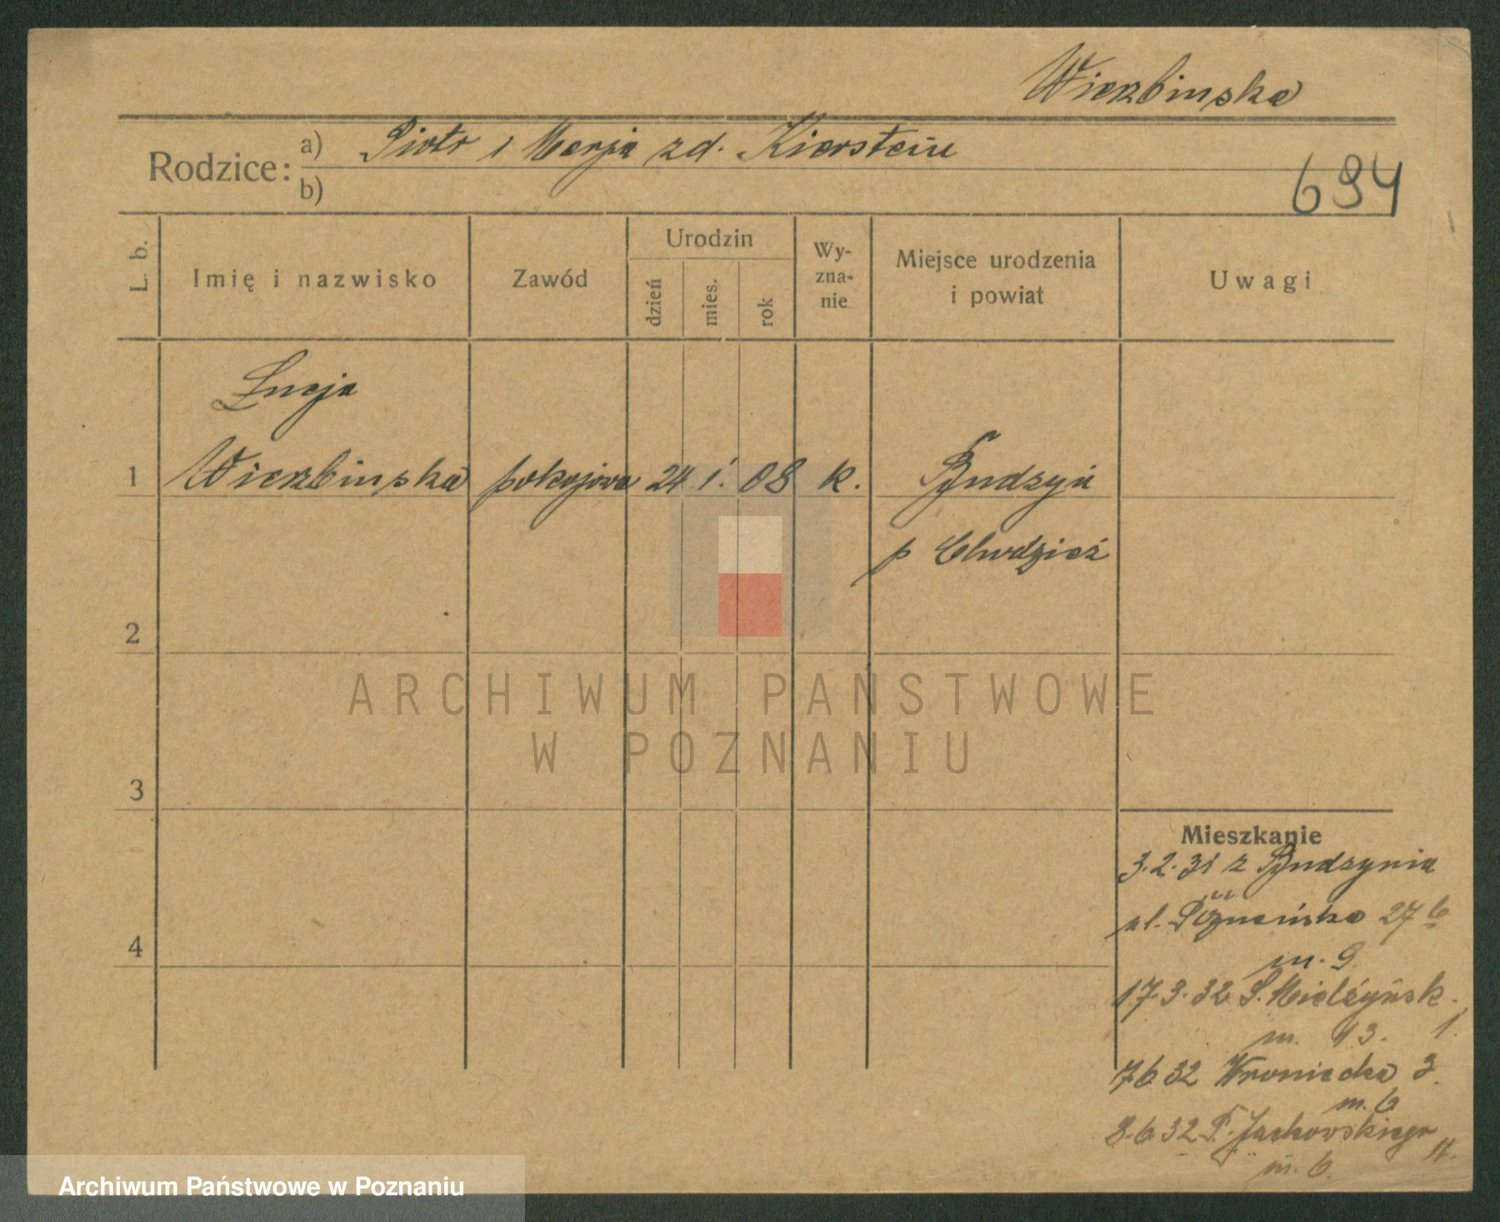 Wierzbinska
Rodzice: a) Piotr i Marja zd. Kierstein
b)
694
L. b.
Imię i nazwisko
Zawód
Urodzin
dzień
mies.
rok
Wy-
zna-
nie
Miejsce urodzenia
i powiat
Uwagi
Łucja
1 Wierzbinska pokojowa 24 1. 08 k. Budzyń
p Chodzież
2
3
4
Mieszkanie
3.2.31 z Budzynia
ul. Poznańska 27
m. 9
17.3.32 S. Mielżyńsk. 1.
m. 13.
7 6 32 Wroniecka 3.
m. 6
8.6.32 P. Jackowskiego
m. 6.
ARCHIWUM PAŃSTWOWE
W POZNANIU
Archiwum Państwowe w Poznaniu